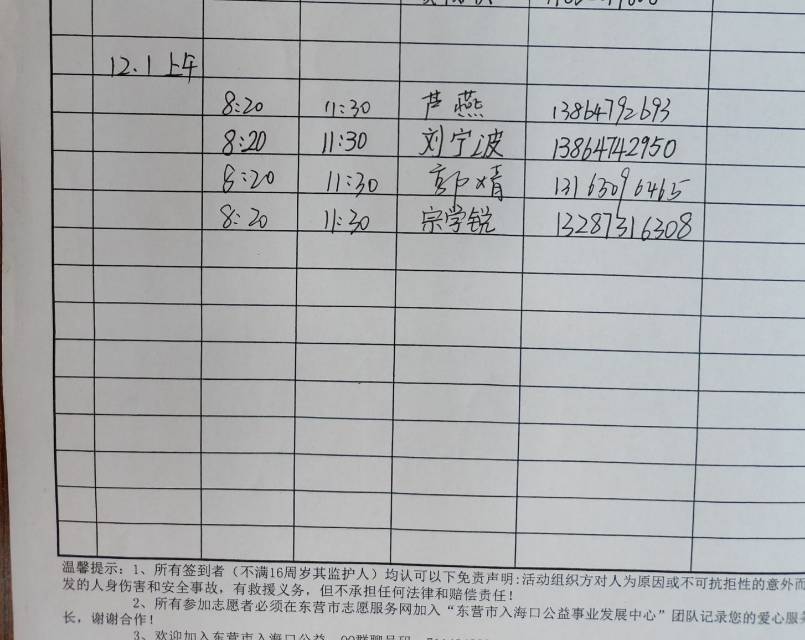 12.1 上午
8:20 11:30 芦燕 13864792693
8:20 11:30 刘宁波 13864742950
8:20 11:30 郭婧 13163096465
8:20 11:30 宗学锐 13287316308
温馨提示：1、所有签到者（不满16周岁其监护人）均认可以下免责声明:活动组织方对人为原因或不可抗拒性的意外而
发的人身伤害和安全事故，有救援义务，但不承担任何法律和赔偿责任！
2、所有参加志愿者必须在东营市志愿服务网加入“东营市入海口公益事业发展中心”团队记录您的爱心服务
长，谢谢合作！
3、欢迎加入东营市入海口公益